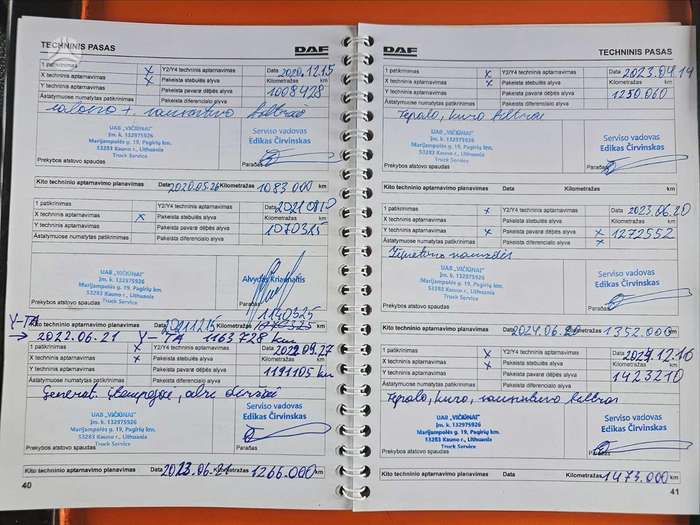 TECHNINIS PASAS DAF
1 patikrinimas x Y2/Y4 techninis aptarnavimas Data 2020.12.15
X techninis aptarnavimas x Pakeista stebulės alyva Kilometražas
Y techninis aptarnavimas Pakeista pavarė dėžės alyva 1008428 km
Ástatymuose numatytas patikrinimas Pakeista diferencialo alyva
UAB „VIČIŪNAI"
Įm. k. 132975926
Marijampolės g. 19, Pagirių km.
53283 Kauno r., Lithuania
Truck Service
Serviso vadovas
Edikas Čirvinskas
Prekybos atstovo spaudas Parašas
Kito techninio aptarnavimo planavimas Data Kilometražas 1083000 km
1 patikrinimas Y2/Y4 techninis aptarnavimas Data
X techninis aptarnavimas x Pakeista stebulės alyva Kilometražas
Y techninis aptarnavimas Pakeista pavarė dėžės alyva 1070325 km
Ástatymuose numatytas patikrinimas Pakeista diferencialo alyva
UAB „VIČIŪNAI"
Įm. k. 132975926
Marijampolės g. 19, Pagirių km.
53283 Kauno r., Lithuania
Truck Service
Prekybos atstovo spaudas Parašas
1140325
Y-TA Kito techninio aptarnavimo planavimas Data Kilometražas km
→ 2022.06.21 Y-TA 1163728 km
1 patikrinimas x Y2/Y4 techninis aptarnavimas Data 2022.09.27
X techninis aptarnavimas x Pakeista stebulės alyva Kilometražas
Y techninis aptarnavimas Pakeista pavarė dėžės alyva 1191105 km
Ástatymuose numatytas patikrinimas Pakeista diferencialo alyva
UAB „VIČIŪNAI"
Įm. k. 132975926
Marijampolės g. 19, Pagirių km.
53283 Kauno r., Lithuania
Truck Service
Serviso vadovas
Edikas Čirvinskas
Prekybos atstovo spaudas Parašas
Kito techninio aptarnavimo planavimas Data 2023.06.21 Kilometražas 1266.000 km
40
DAF TECHNINIS PASAS
1 patikrinimas x Y2/Y4 techninis aptarnavimas Data 2023.04.14
X techninis aptarnavimas x Pakeista stebulės alyva Kilometražas
Y techninis aptarnavimas Pakeista pavarė dėžės alyva 1250.060 km
Ástatymuose numatytas patikrinimas Pakeista diferencialo alyva
Tepalo, kuro filtrai
UAB „VIČIŪNAI"
Įm. k. 132975926
Marijampolės g. 19, Pagirių km.
53283 Kauno r., Lithuania
Truck Service
Serviso vadovas
Edikas Čirvinskas
Prekybos atstovo spaudas Parašas
Kito techninio aptarnavimo planavimas Data Kilometražas km
1 patikrinimas x Y2/Y4 techninis aptarnavimas Data 2023.06.20
X techninis aptarnavimas Pakeista stebulės alyva Kilometražas
Y techninis aptarnavimas x Pakeista pavarė dėžės alyva x 1272552 km
Ástatymuose numatytas patikrinimas Pakeista diferencialo alyva x
UAB „VIČIŪNAI"
Įm. k. 132975926
Marijampolės g. 19, Pagirių km.
53283 Kauno r., Lithuania
Truck Service
Serviso vadovas
Edikas Čirvinskas
Prekybos atstovo spaudas Parašas
Kito techninio aptarnavimo planavimas Data 2024.06.20 Kilometražas 1352.000 km
1 patikrinimas x Y2/Y4 techninis aptarnavimas Data 2024.12.16
X techninis aptarnavimas x Pakeista stebulės alyva Kilometražas
Y techninis aptarnavimas Pakeista pavarė dėžės alyva 1423210 km
Ástatymuose numatytas patikrinimas Pakeista diferencialo alyva
Tepalo, kuro, sausintuvo filtras
UAB „VIČIŪNAI"
Įm. k. 132975926
Marijampolės g. 19, Pagirių km.
53283 Kauno r., Lithuania
Truck Service
Serviso vadovas
Edikas Čirvinskas
Prekybos atstovo spaudas Parašas
Kito techninio aptarnavimo planavimas Data Kilometražas 1473.000 km
41